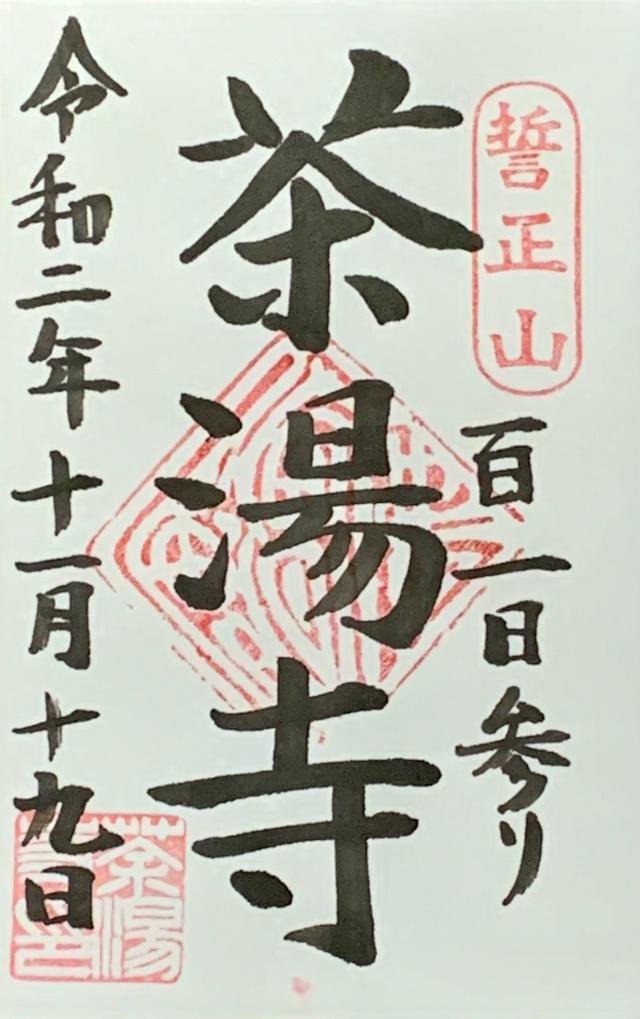 誓正山
百一日参り
茶湯寺
令和二年十一月十九日
茶湯